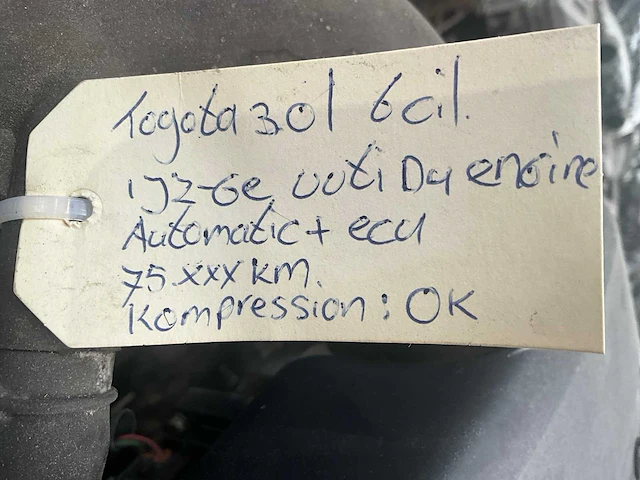 Toyota 3.0l 6 cil.
1JZ-Ge vvti D4 engine
Automatic + ecu
75.xxx km.
Kompression: OK